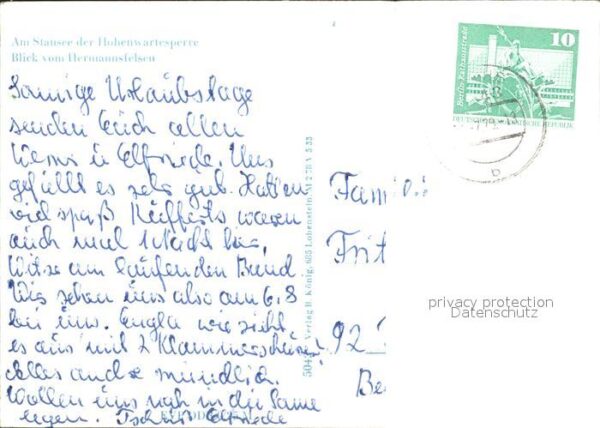 Am Stausee der Hohenwartesperre
Blick vom Hermannsfelsen
10
Berlin, Rathausstraße
DEUTSCHE DEMOKRATISCHE REPUBLIK
Sonnige Urlaubstage
senden Euch allen
Werner u Elfriede. Uns
gefällt es sehr gut. Hatten
viel spaß waren
auch mal 1 Nacht hier,
Witze am laufenden Band
Wir sehen uns also am 6.8
bei uns. wie sieht
es aus mit 2
Alles andre mündlich.
Wollen uns noch in die Sonne
legen. Tschüß Elfriede
Famili
Frit
92
Be
Verlag H. König, 685 Lobenstein
privacy protection
Datenschutz